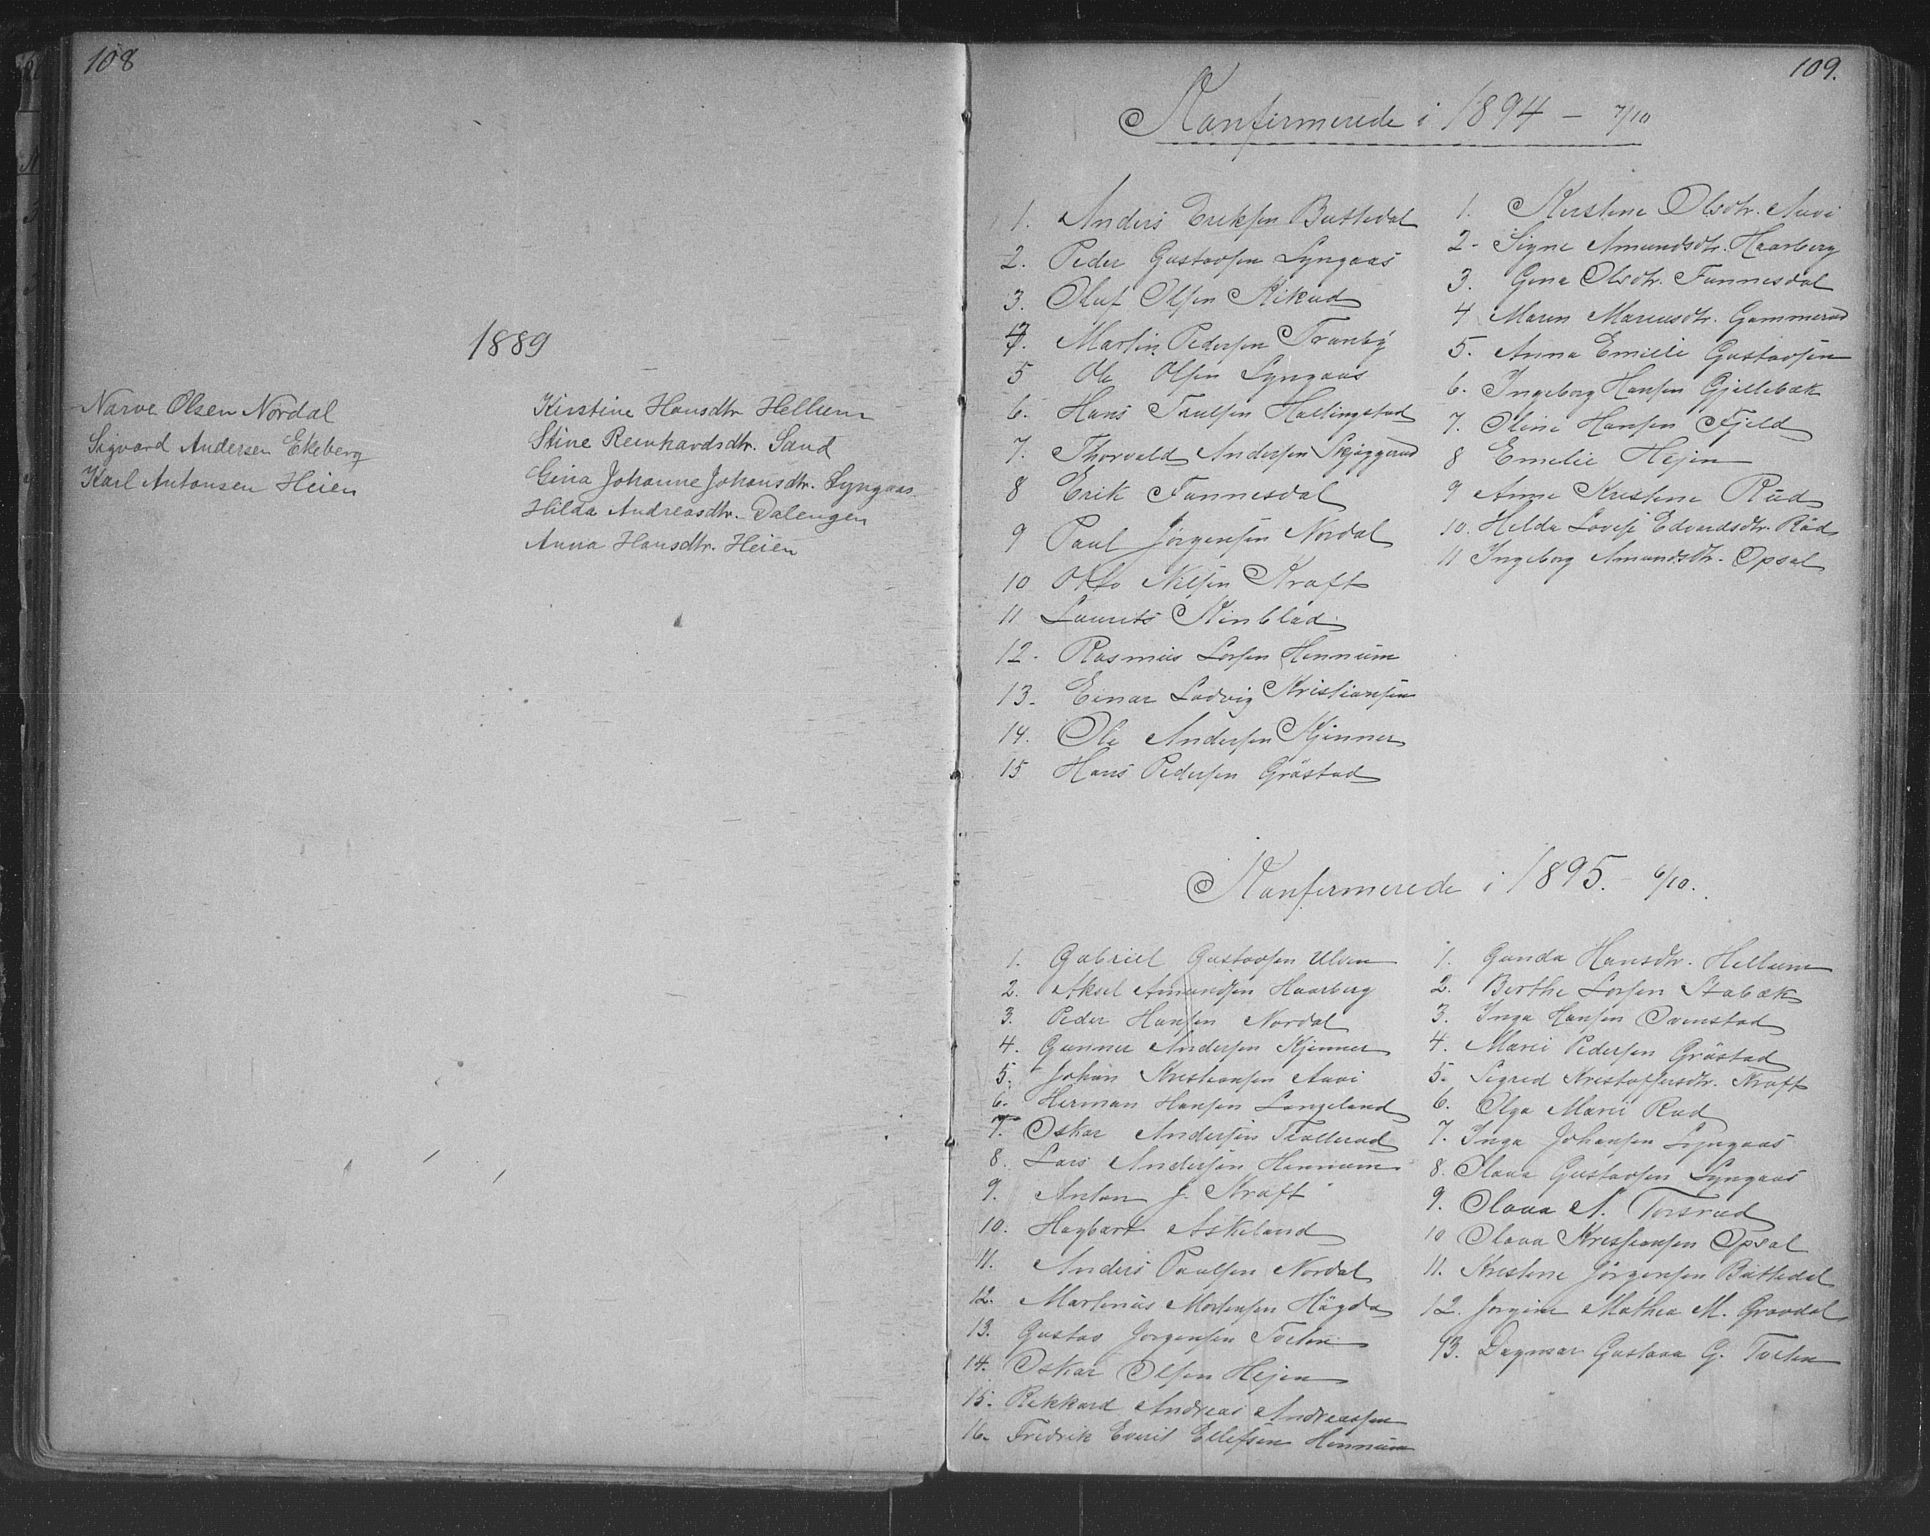 108
1889
Narve Olsen Nordal
Sigvard Andersen Ekeberg
Karl Antonsen Heien
Kirstine Hansdtr Hellum
Stine Reinhardsdtr. Sand
Gina Johanne Johansdtr. Lyngaas
Hilda Andreasdtr. Dalengen
Anna Hansdtr. Heien
109.
Konfirmerede i 1894 – 7/10
1. Anders Eriksen Battedal
2. Peder Gustavsen Lyngaas
3. Oluf Olsen Rikud
4. Martin Pedersen Tranby
5 Ole Olsen Lyngaas
6. Hans Paulsen Hallingstad
7. Thorvald Andersen Skjæggerud
8 Erik Tannesdal
9 Paul Jørgensen Nordal
10 Otto Nilsen Kraft
11 Laurits Kinblad
12. Rasmus Larsen Hennum
13. Einar Ludvig Kristiansen
14. Ole Andersen Kjenner
15 Hans Pedersen Gråstad
1. Kirstine Olsdtr. Aavi
2. Signe Amundsdtr. Haarberg
3. Gine Olsdtr. Tannesdal
4 Maren Mariusdtr. Gammerud
5. Anna Emilie Gustavsen
6. Ingeborg Hansen Gjellebæk
7. Oline Hansen Fjeld
8 Emelie Hejen
9 Anne Kristine Rud
10. Hilda Lovise Edvardsdtr. Röd
11 Ingeborg Amundsdtr. Opsal
Konfirmerede i 1895. – 6/10.
1. Gabriel Gustavsen Ulven
2. Aksel Amundsen Haarberg
3. Peder Hansen Nordal
4. Gunner Andersen Kjenner
5. Johan Kristiansen Aavi
6. Herman Hansen Langeland
7. Oskar Andersen Skallerud
8. Lars Andersen Hennum
9. Anton J. Kraft
10. Hagbart Askeland
11. Anders Paulsen Nordal
12. Martinius Mortensen Högda
13. Gustav Jørgensen Torten
14. Oskar Olsen Hejen
15. Rikkard Andreas Andreassen
16. Fredrik Everil Ellefsen Hennum
1. Gunda Hansdtr. Hellum
2. Berthe Larsen Stabæk
3. Inga Hansen Ovenstad
4. Marie Pedersen Gråstad
5. Sigrid Kristoffersdtr. Kraft
6. Olga Marie Rud
7. Inga Johansen Lyngaas
8. Olava Gustavsen Lyngaas
9. Olava N. Torsrud
10 Olava Kristiansen Opsal
11. Kristine Jörgensen Battedal
12. Jorgine Mathea M. Gravdal
13. Dagmar Gustava G. Torten